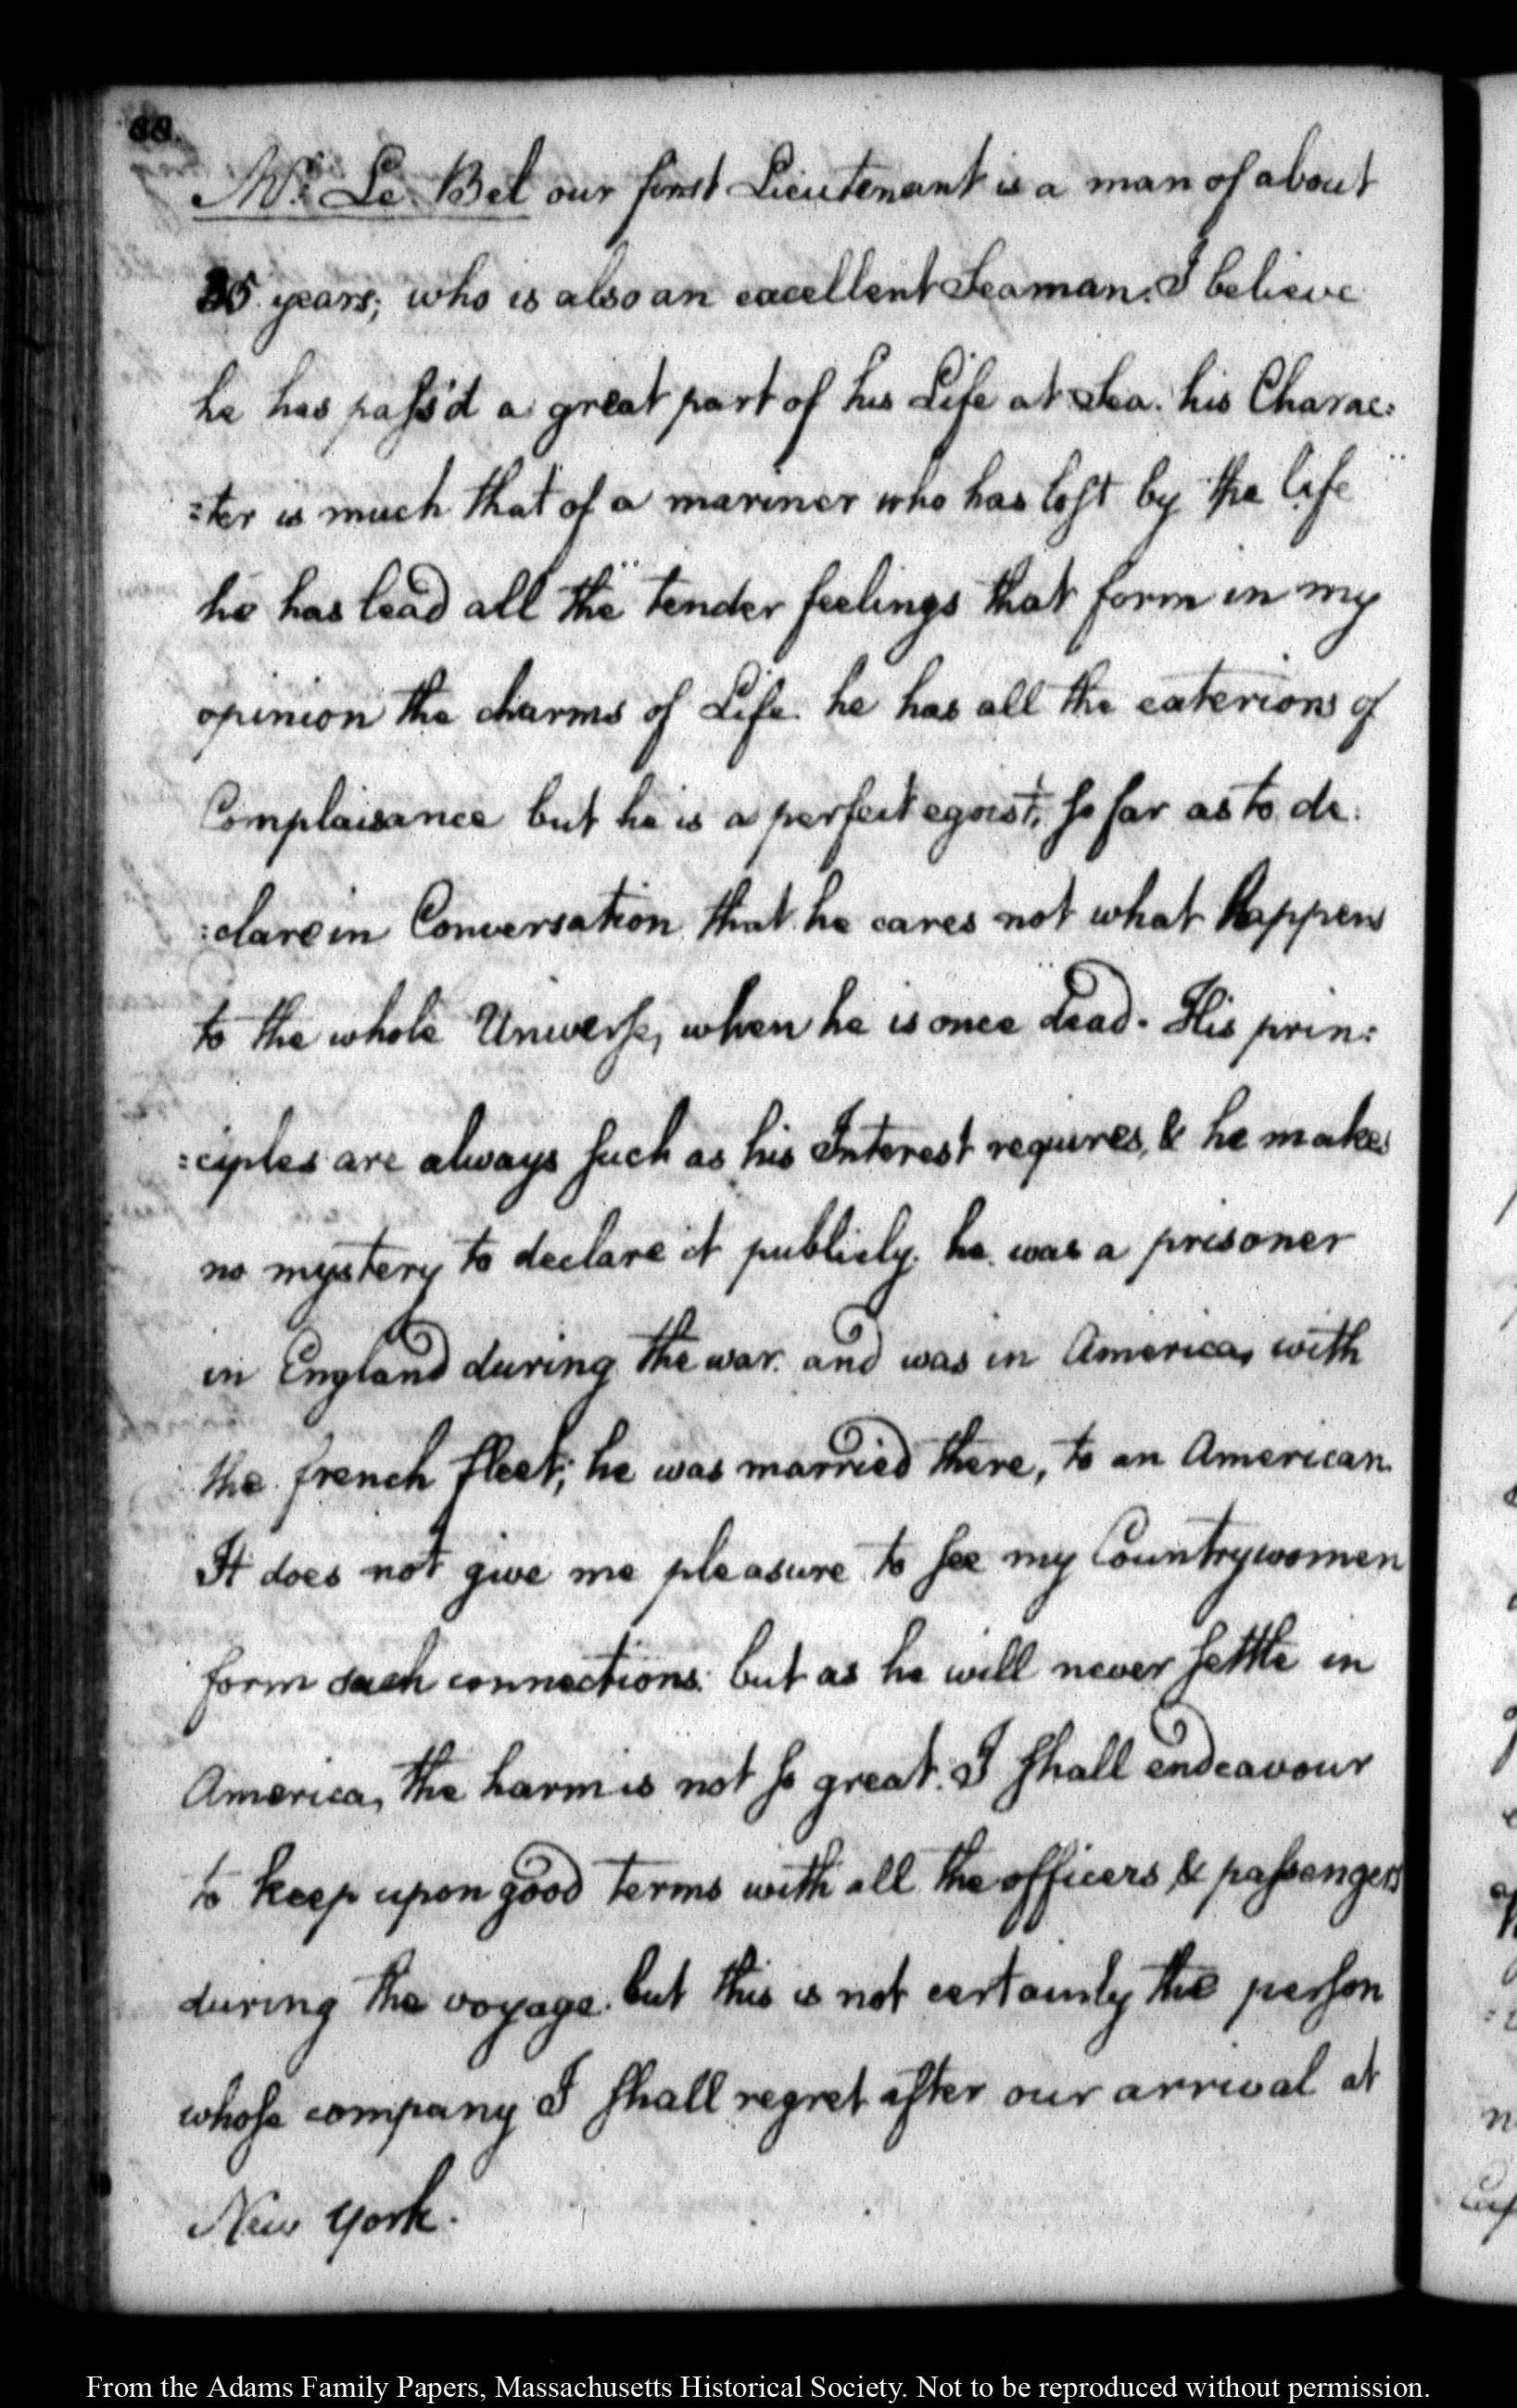 88.
Mr. Le Bel our first Lieutenant is a man of about
35 years; who is also an excellent Seaman. I believe
he has pass'd a great part of his Life at Sea. his Charac:
:ter is much that of a mariner who has lost by the life
he has lead all the tender feelings that form in my
opinion the charms of Life. he has all the exterions of
Complaisance but he is a perfect egoist, so far as to de:
:clare in Conversation that he cares not what happens
to the whole Universe, when he is once dead. His prin:
:ciples are always such as his Interest requires, & he makes
no mystery to declare it publicly. he was a prisoner
in England during the war. and was in America, with
the french fleet; he was married there, to an American.
It does not give me pleasure to see my Countrywomen
form such connections: but as he will never settle in
America, the harm is not so great. I shall endeavour
to keep upon good terms with all the officers & passengers
during the voyage. but this is not certainly the person
whose company I shall regret after our arrival at
New York.
From the Adams Family Papers, Massachusetts Historical Society. Not to be reproduced without permission.